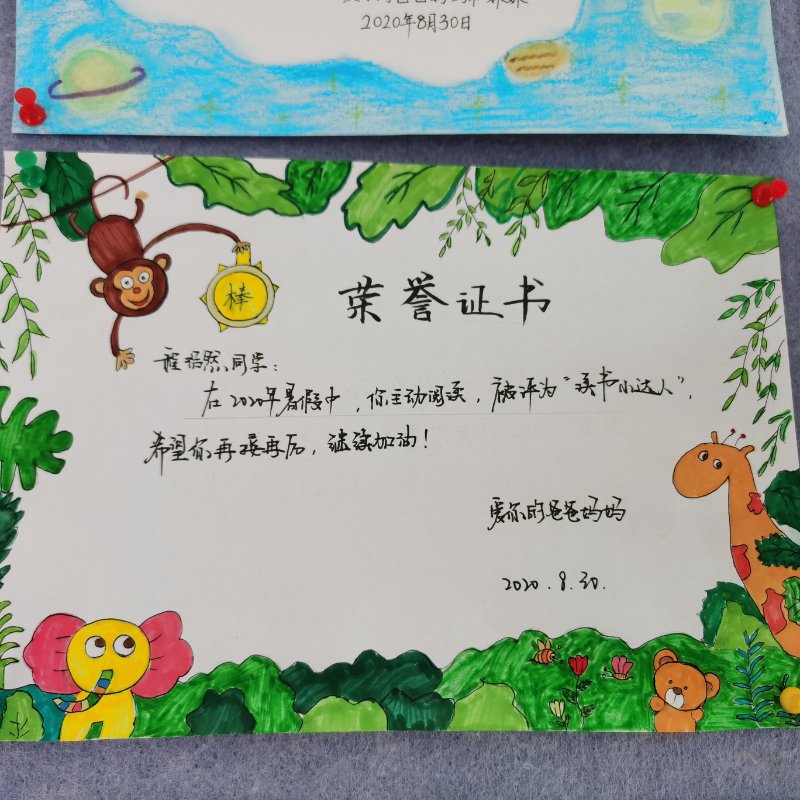 2020年8月30日
棒
荣誉证书
程招然同学：
在2020年暑假中，你主动阅读，被评为“读书小达人”，
希望你再接再厉，继续加油！
爱你的爸爸妈妈
2020.8.30.